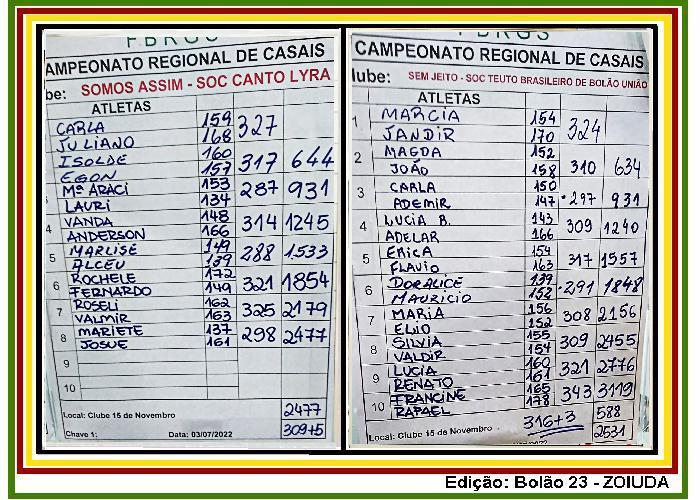 FBRGS
CAMPEONATO REGIONAL DE CASAIS
be: SOMOS ASSIM - SOC CANTO LYRA
ATLETAS
CARLA 159 327
JULIANO 168
ISOLDE 160
EGON 157 317 644
Mª ARACI 153
LAURI 134 287 931
4 VANDA 148
ANDERSON 166 314 1245
5 MARLISE 149
ALCEU 139 288 1533
6 ROCHELE 172
FERNARDO 149 321 1854
7 ROSELI 162
VALMIR 163 325 2179
8 MARIETE 137
JOSUE 161 298 2477
9
10
2477
Local: Clube 15 de Novembro
309+5
Chave 1: Data: 03/07/2022
FBRGS
CAMPEONATO REGIONAL DE CASAIS
lube: SEM JEITO - SOC TEUTO BRASILEIRO DE BOLÃO UNIÃO
ATLETAS
1 MARCIA 154
JANDIR 170 324
2 MAGDA 152
JOÃO 158 310 634
3 CARLA 150
ADEMIR 147 297 931
4 LUCIA B. 143
ADELAR 166 309 1240
5 ERICA 154
FLAVIO 163 317 1557
6 DORALICE 139
MAURICIO 152 291 1848
7 MARIA 156
ELIO 152 308 2156
8 SILVIA 155
VALDIR 154 309 2455
9 LUCIA 160
RENATO 161 321 2776
10 FRANCINE 165
RAPAEL 178 343 3119
588
Local: Clube 15 de Novembro 316+3 2531
Edição: Bolão 23 - ZOIUDA